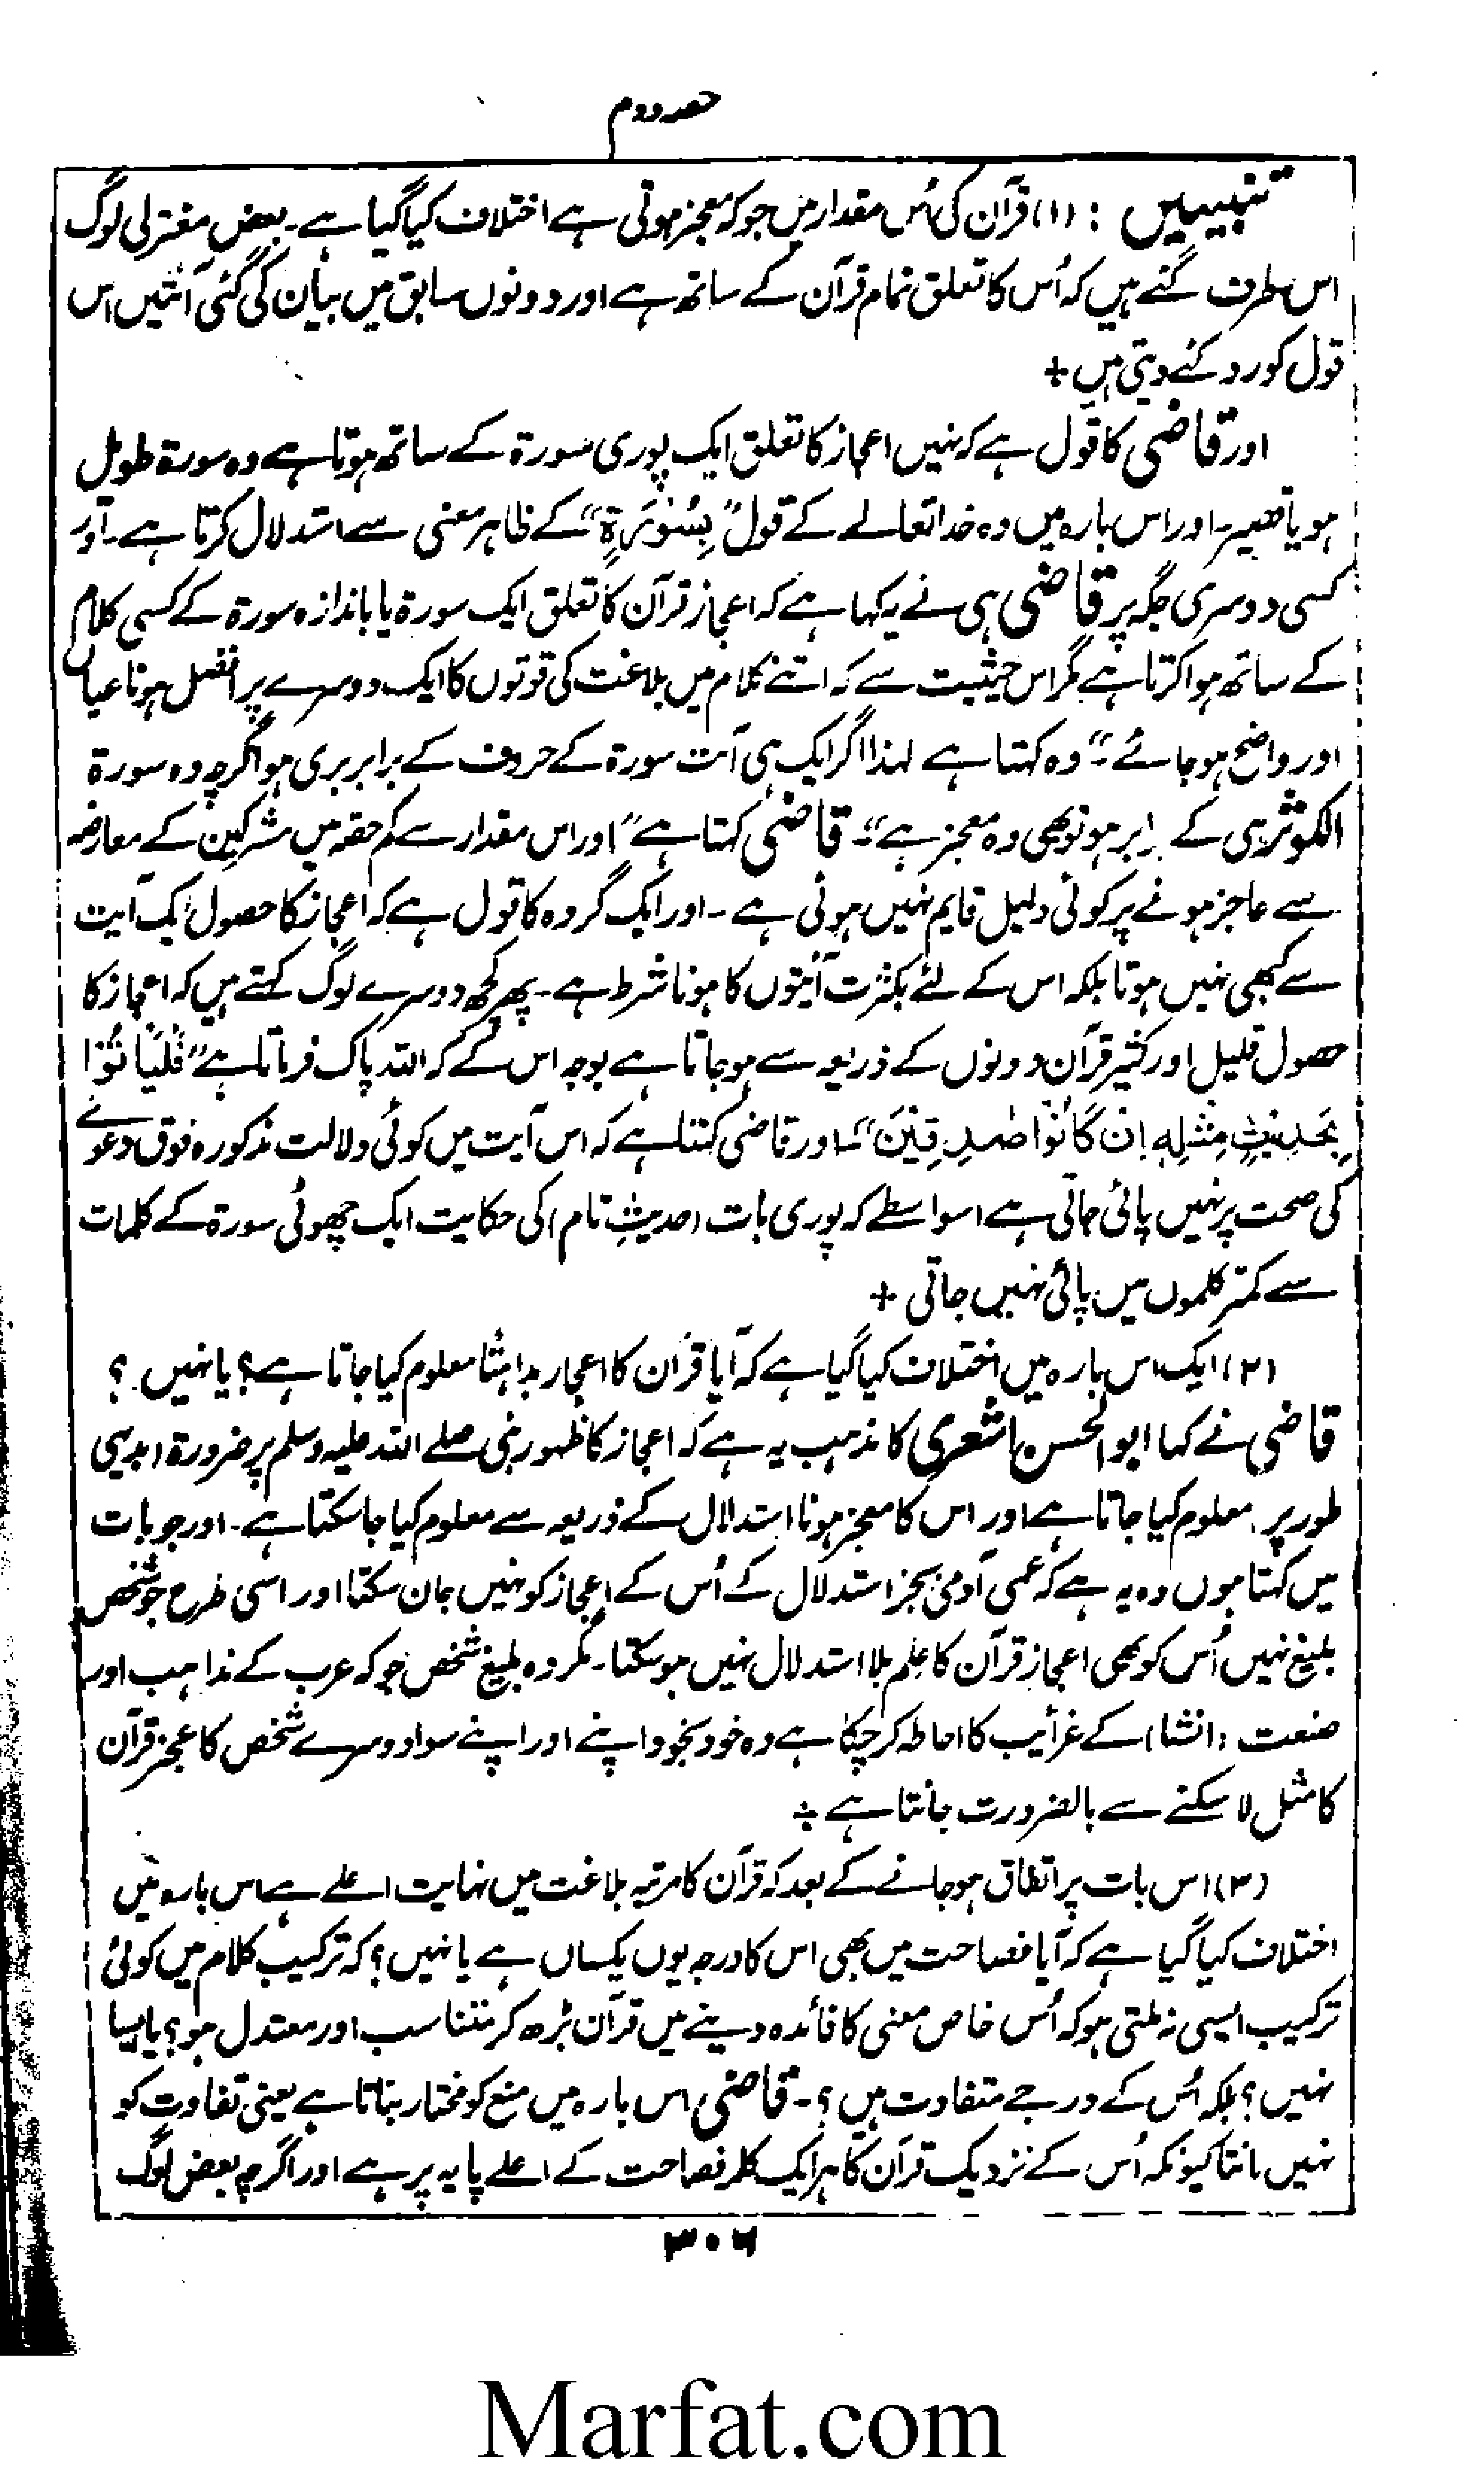 حصہ دوم
تنبیہیں : (۱) قرآن کی اُس مقدار میں جو کہ معجز ہوتی ہے اختلاف کیا گیا ہے۔ بعض معتزلی لوگ
اس طرف گئے ہیں کہ اُس کا تعلق تمام قرآن کے ساتھ ہے اور دونوں سابق میں بیان کی گئی آئتیں اس
قول کو رد کئے دیتی ہیں +
اور قاضی کا قول ہے کہ نہیں اعجاز کا تعلق ایک پوری سورۃ کے ساتھ ہوتا ہے وہ سورۃ طویل
ہو یا قصیر۔ اور اس بارہ میں وہ خدا تعالےٰ کے قول ”بِسُوْرَۃٍ“ کے ظاہر معنی سے استدلال کرتا ہے۔ اَور
کسی دوسری جگہ پر قاضی ہی نے یہ کہا ہے کہ اعجاز قرآن کا تعلق ایک سورۃ یا باندازہ سورۃ کے کسی کلام
کے ساتھ ہوا کرتا ہے مگر اس حیثیت سے کہ اتنے کلام میں بلاغت کی قوتوں کا ایک دوسرے پر افضل ہونا عیاں
اور واضح ہو جائے۔“ وہ کہتا ہے لہذا اگر ایک ہی آیت سورۃ کے حروف کے برابر بری ہو اگرچہ وہ سورۃ
الکوثر ہی کے برابر ہو تو بھی وہ معجز ہے“۔ قاضی کہتا ہے ”اور اس مقدار سے کم حصہ میں مشرکین کے معارضہ
سے عاجز ہونے پر کوئی دلیل قایم نہیں ہوئی ہے۔ اور ایک گروہ کا قول ہے کہ اعجاز کا حصول ایک آیت
سے کبھی نہیں ہوتا بلکہ اس کے لئے بکثرت آیتوں کا ہونا شرط ہے۔ پھر کچھ دوسرے لوگ کہتے ہیں کہ اعجاز کا
حصول قلیل اور کثیر قرآن دونوں کے ذریعہ سے ہو جاتا ہے بوجہ اس کے کہ اللہ پاک فرماتا ہے ”فَلْیَاْتُوْا
بِحَدِیْثٍ مِّثْلِہٖ اِنْ کَانُوْا صٰدِقِیْنَ“ اور قاضی کہتا ہے کہ اس آیت میں کوئی دلالت مذکورہ فوق دعوے
کی صحت پر نہیں پائی جاتی ہے اسواسطے کہ پوری بات (حدیثِ تام) کی حکایت ایک چھوٹی سورۃ کے کلمات
سے کمتر کلموں میں پائی نہیں جاتی +
(۲) ایک اس بارہ میں اختلاف کیا گیا ہے کہ آیا قرآن کا اعجاز بداہتًا معلوم کیا جاتا ہے؟ یا نہیں ؟
قاضی نے کہا ابو الحسن اشعری کا مذہب یہ ہے کہ اعجاز کا ظہور نبی صلے اللہ علیہ وسلم پر ضرورۃ (بدیہی
طور پر) معلوم کیا جاتا ہے اور اس کا معجز ہونا استدلال کے ذریعہ سے معلوم کیا جا سکتا ہے۔ اور جو بات
میں کہتا ہوں وہ یہ ہے کہ عجمی آدمی بجز استدلال کے اُس کے اعجاز کو نہیں جان سکتا اور اسی طرح جو شخص
بلیغ نہیں اُس کو بھی اعجاز قرآن کا علم بلا استدلال نہیں ہو سکتا۔ مگر وہ بلیغ شخص جو کہ عرب کے مذاہب اور
صنعت (انشا) کے غرائیب کا احاطہ کر چکا ہے وہ خود بخود اپنے اور اپنے سوا دوسرے شخص کا عجز قرآن
کا مثل لا سکنے سے بالضرورت جانتا ہے +
(۳) اس بات پر اتفاق ہو جانے کے بعد کہ قرآن کا مرتبہ بلاغت میں نہایت اعلےٰ ہے اس بارہ میں
اختلاف کیا گیا ہے کہ آیا فصاحت میں بھی اس کا درجہ یوں یکساں ہے یا نہیں؟ کہ ترکیب کلام میں کوئی
ترکیب ایسی نہ ملتی ہو کہ اُس خاص معنی کا فائدہ دینے میں قرآن بڑھ کر متناسب اور معتدل ہو؟ یا ایسا
نہیں؟ بلکہ اُس کے درجے متفاوت ہیں؟۔ قاضی اس بارہ میں منع کو مختار بناتا ہے یعنی تفاوت کو
نہیں مانتا کیونکہ اُس کے نزدیک قرآن کا ہر ایک کلمہ فصاحت کے اعلےٰ پایہ پر ہے اور اگرچہ بعض لوگ
۳۰۶
Marfat.com